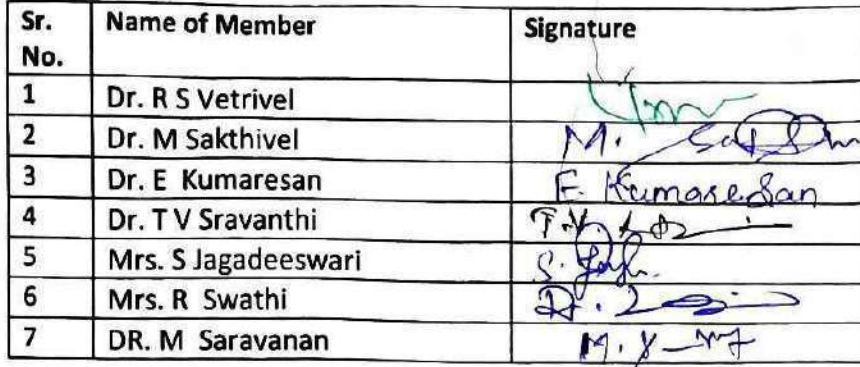 Sr. No. Name of Member Signature
1 Dr. R S Vetrivel
2 Dr. M Sakthivel M.
3 Dr. E Kumaresan E. Kumaresan
4 Dr. T V Sravanthi T.V.
5 Mrs. S Jagadeeswari S.
6 Mrs. R Swathi
7 DR. M Saravanan M.